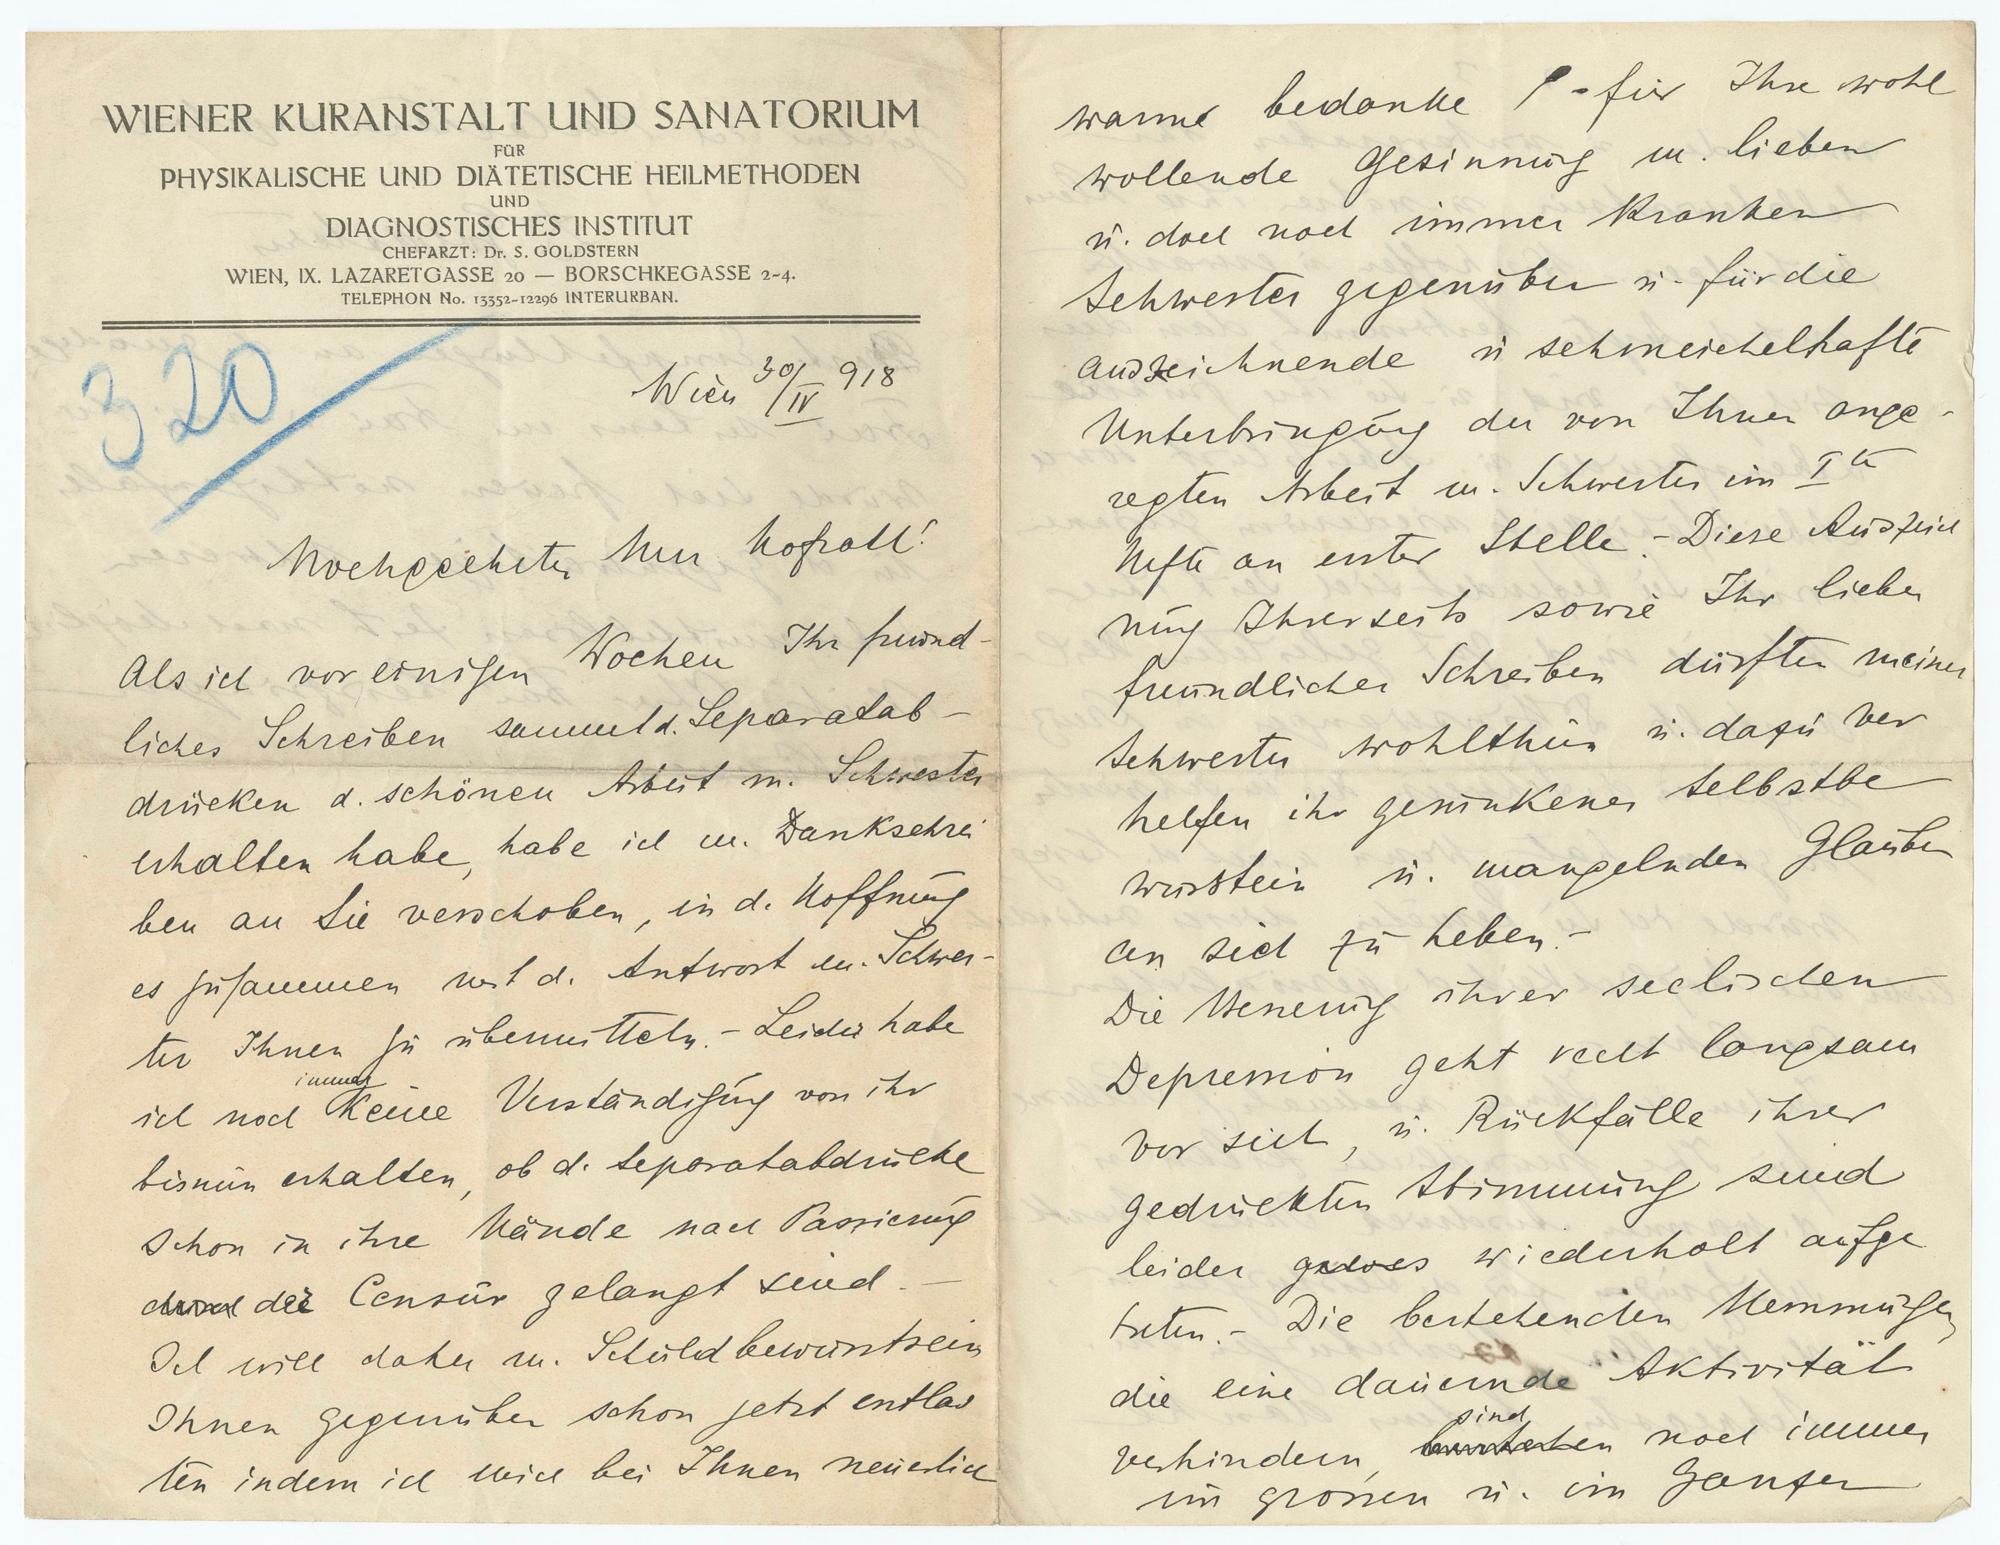 WIENER KURANSTALT UND SANATORIUM
FÜR
PHYSIKALISCHE UND DIÄTETISCHE HEILMETHODEN
UND
DIAGNOSTISCHES INSTITUT
CHEFARZT: Dr. S. GOLDSTERN
WIEN, IX. LAZARETGASSE 20 — BORSCHKEGASSE 2-4.
TELEPHON No. 13352-12296 INTERURBAN.
320
Wien 30/IV 918
Hochgeehrter Herr Hofrath!
Als ich vor einigen Wochen Ihr freund-
liches Schreiben sammt d. Separatab-
drücken d. schönen Arbeit m. Schwester
erhalten habe, habe ich m. Dankschrei
ben an Sie verschoben, in d. Hoffnung
es zusammen mit d. Antwort m. Schwes-
ter Ihnen zu übermitteln. - Leider habe
ich noch immer keine Verständigung von ihr
bisnun erhalten, ob d. Separatabdrücke
schon in ihre Hände nach Passierung
der Censur gelangt sind. —
Ich will daher m. Schuldbewusstsein
Ihnen gegenüber schon jetzt entlas
ten indem ich mich bei Ihnen neuerlich
warme bedanke - für Ihre wohl
wollende Gesinnung m. lieben
u. doch noch immer kranken
Schwester gegenüber u. für die
auszeichnende u schmeichelhafte
Unterbringung der von Ihnen ange-
regten Arbeit m. Schwester im Iten
Hefte an erster Stelle. - Diese Auszeich
nung Ihrerseits sowie Ihr lieber
freundlicher Schreiben dürften meiner
Schwester wohlthun u. dazu ver
helfen ihr gesunkenes Selbstbe
wusstein u. mangelnden Glauben
an sich zu heben. -
Die Besserung ihrer seelischen
Depression geht recht langsam
vor sich, u. Rückfälle ihrer
gedrückten Stimmung sind
leider wiederholt aufge
treten. - Die bestehenden Hemmungen,
die eine dauernde Aktivität
verhindern, sind noch immer
im grossen u. im Ganzen